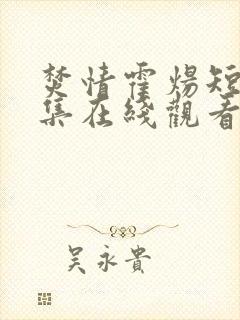 焚情霍煬短
集在綫觀看
吳永貴